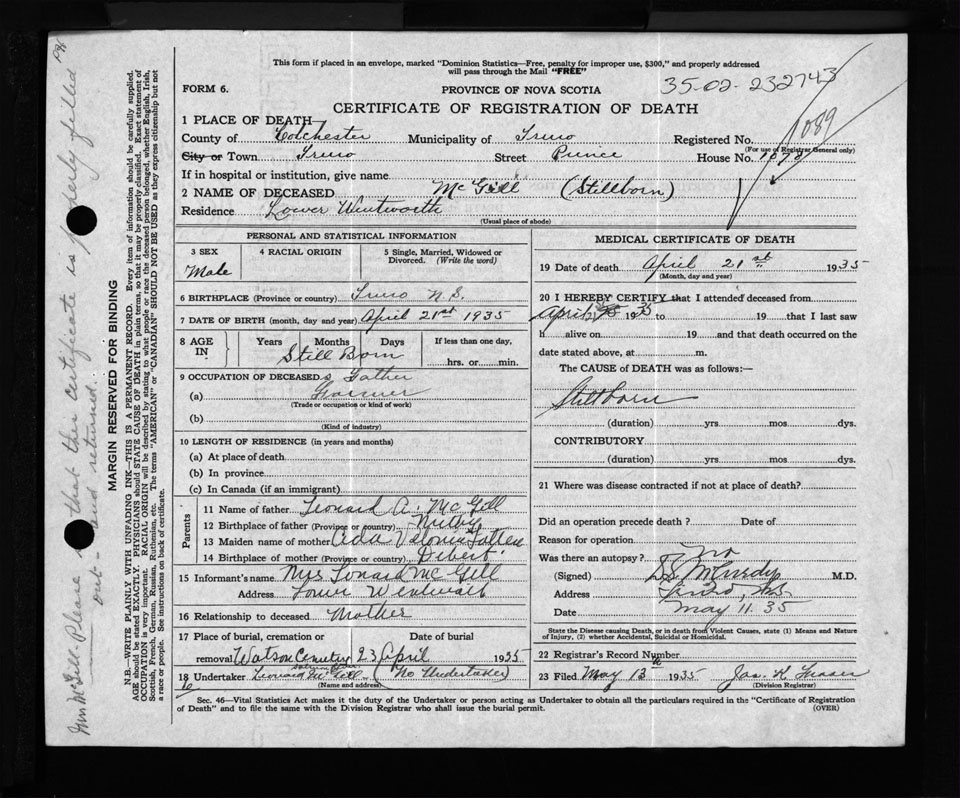 This form if placed in an envelope, marked "Dominion Statistics—Free, penalty for improper use, $300," and properly addressed
will pass through the Mail "FREE"
35-02-232743
FORM 6.
PROVINCE OF NOVA SCOTIA
CERTIFICATE OF REGISTRATION OF DEATH
1089
1 PLACE OF DEATH
County of Colchester Municipality of Truro Registered No.
(For use of Registrar General only)
City or Town Truro Street Prince House No.
If in hospital or institution, give name
2 NAME OF DECEASED McGill (Stillborn)
Residence Lower Wentworth
(Usual place of abode)
PERSONAL AND STATISTICAL INFORMATION
3 SEX 4 RACIAL ORIGIN 5 Single, Married, Widowed or
Divorced. (Write the word)
Male
6 BIRTHPLACE (Province or country) Truro N.S.
7 DATE OF BIRTH (month, day and year) April 21st 1935
8 AGE
IN
Years Months Days If less than one day,
Still Born hrs. or min.
9 OCCUPATION OF DECEASEDs Father
(a) Farmer
(Trade or occupation or kind of work)
(b)
(Kind of industry)
10 LENGTH OF RESIDENCE (in years and months)
(a) At place of death
(b) In province
(c) In Canada (if an immigrant)
Parents
11 Name of father Leonard A. McGill
12 Birthplace of father (Province or country) Nuttby
13 Maiden name of mother
14 Birthplace of mother (Province or country) Debert
15 Informant's name Mrs Lonard McGill
Address Lower
16 Relationship to deceased Mother
17 Place of burial, cremation or Date of burial
removal Watson Cemetery 23 April 1935
18 Undertaker Leonard McGill (No Undertaker)
(Name and address)
MEDICAL CERTIFICATE OF DEATH
19 Date of death April 21st 1935
(Month, day and year)
20 I HEREBY CERTIFY that I attended deceased from
April 21 1935 to 19 that I last saw
h alive on 19 and that death occurred on the
date stated above, at m.
The CAUSE of DEATH was as follows:—
Stillborn
(duration) yrs mos dys.
CONTRIBUTORY
(duration) yrs. mos. dys.
21 Where was disease contracted if not at place of death?
Did an operation precede death? Date of
Reason for operation
Was there an autopsy? no
(Signed) McCurdy M.D.
Address Truro, N.S.
Date May 11.35
State the Disease causing Death, or in death from Violent Causes, state (1) Means and Nature
of Injury, (2) whether Accidental, Suicidal or Homicidal.
22 Registrar's Record Number
23 Filed May 13 1935 Jas. K. Fraser
(Division Registrar)
Sec. 46—Vital Statistics Act makes it the duty of the Undertaker or person acting as Undertaker to obtain all the particulars required in the "Certificate of Registration
of Death" and to file the same with the Division Registrar who shall issue the burial permit. (OVER)
MARGIN RESERVED FOR BINDING
N.B.—WRITE PLAINLY WITH UNFADING INK—THIS IS A PERMANENT RECORD. Every item of information should be carefully supplied.
AGE should be stated EXACTLY. PHYSICIANS should STATE CAUSE OF DEATH in plain terms, so that it may be properly classified. Exact statement of
OCCUPATION is very important. RACIAL ORIGIN will be described by stating to what people or race the deceased person belonged, whether English, Irish,
Scottish, French, German, Russian, Ruthenian, etc. The terms "AMERICAN" or "CANADIAN" SHOULD NOT BE USED as they express citizenship but not
a race or people. See instructions on back of certificate.
Mrs McGill. Please that this certificate is properly filled
out - and returned.